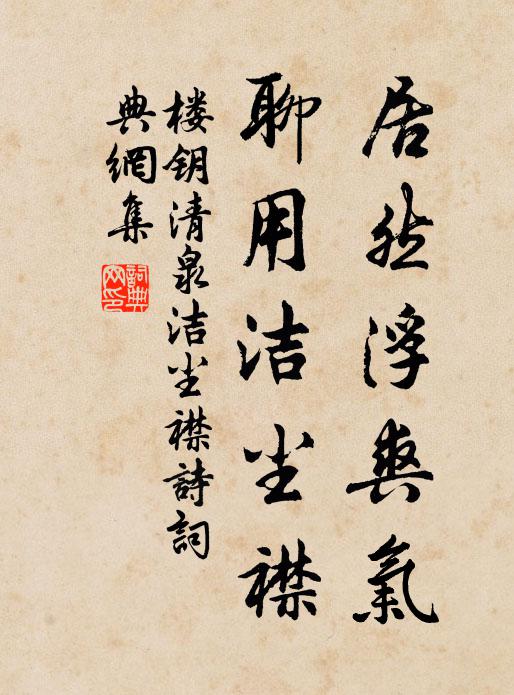 居然浮爽氣
聊用洁尘襟
楼钥清泉洁尘襟詩詞
典網集
詞典
网印